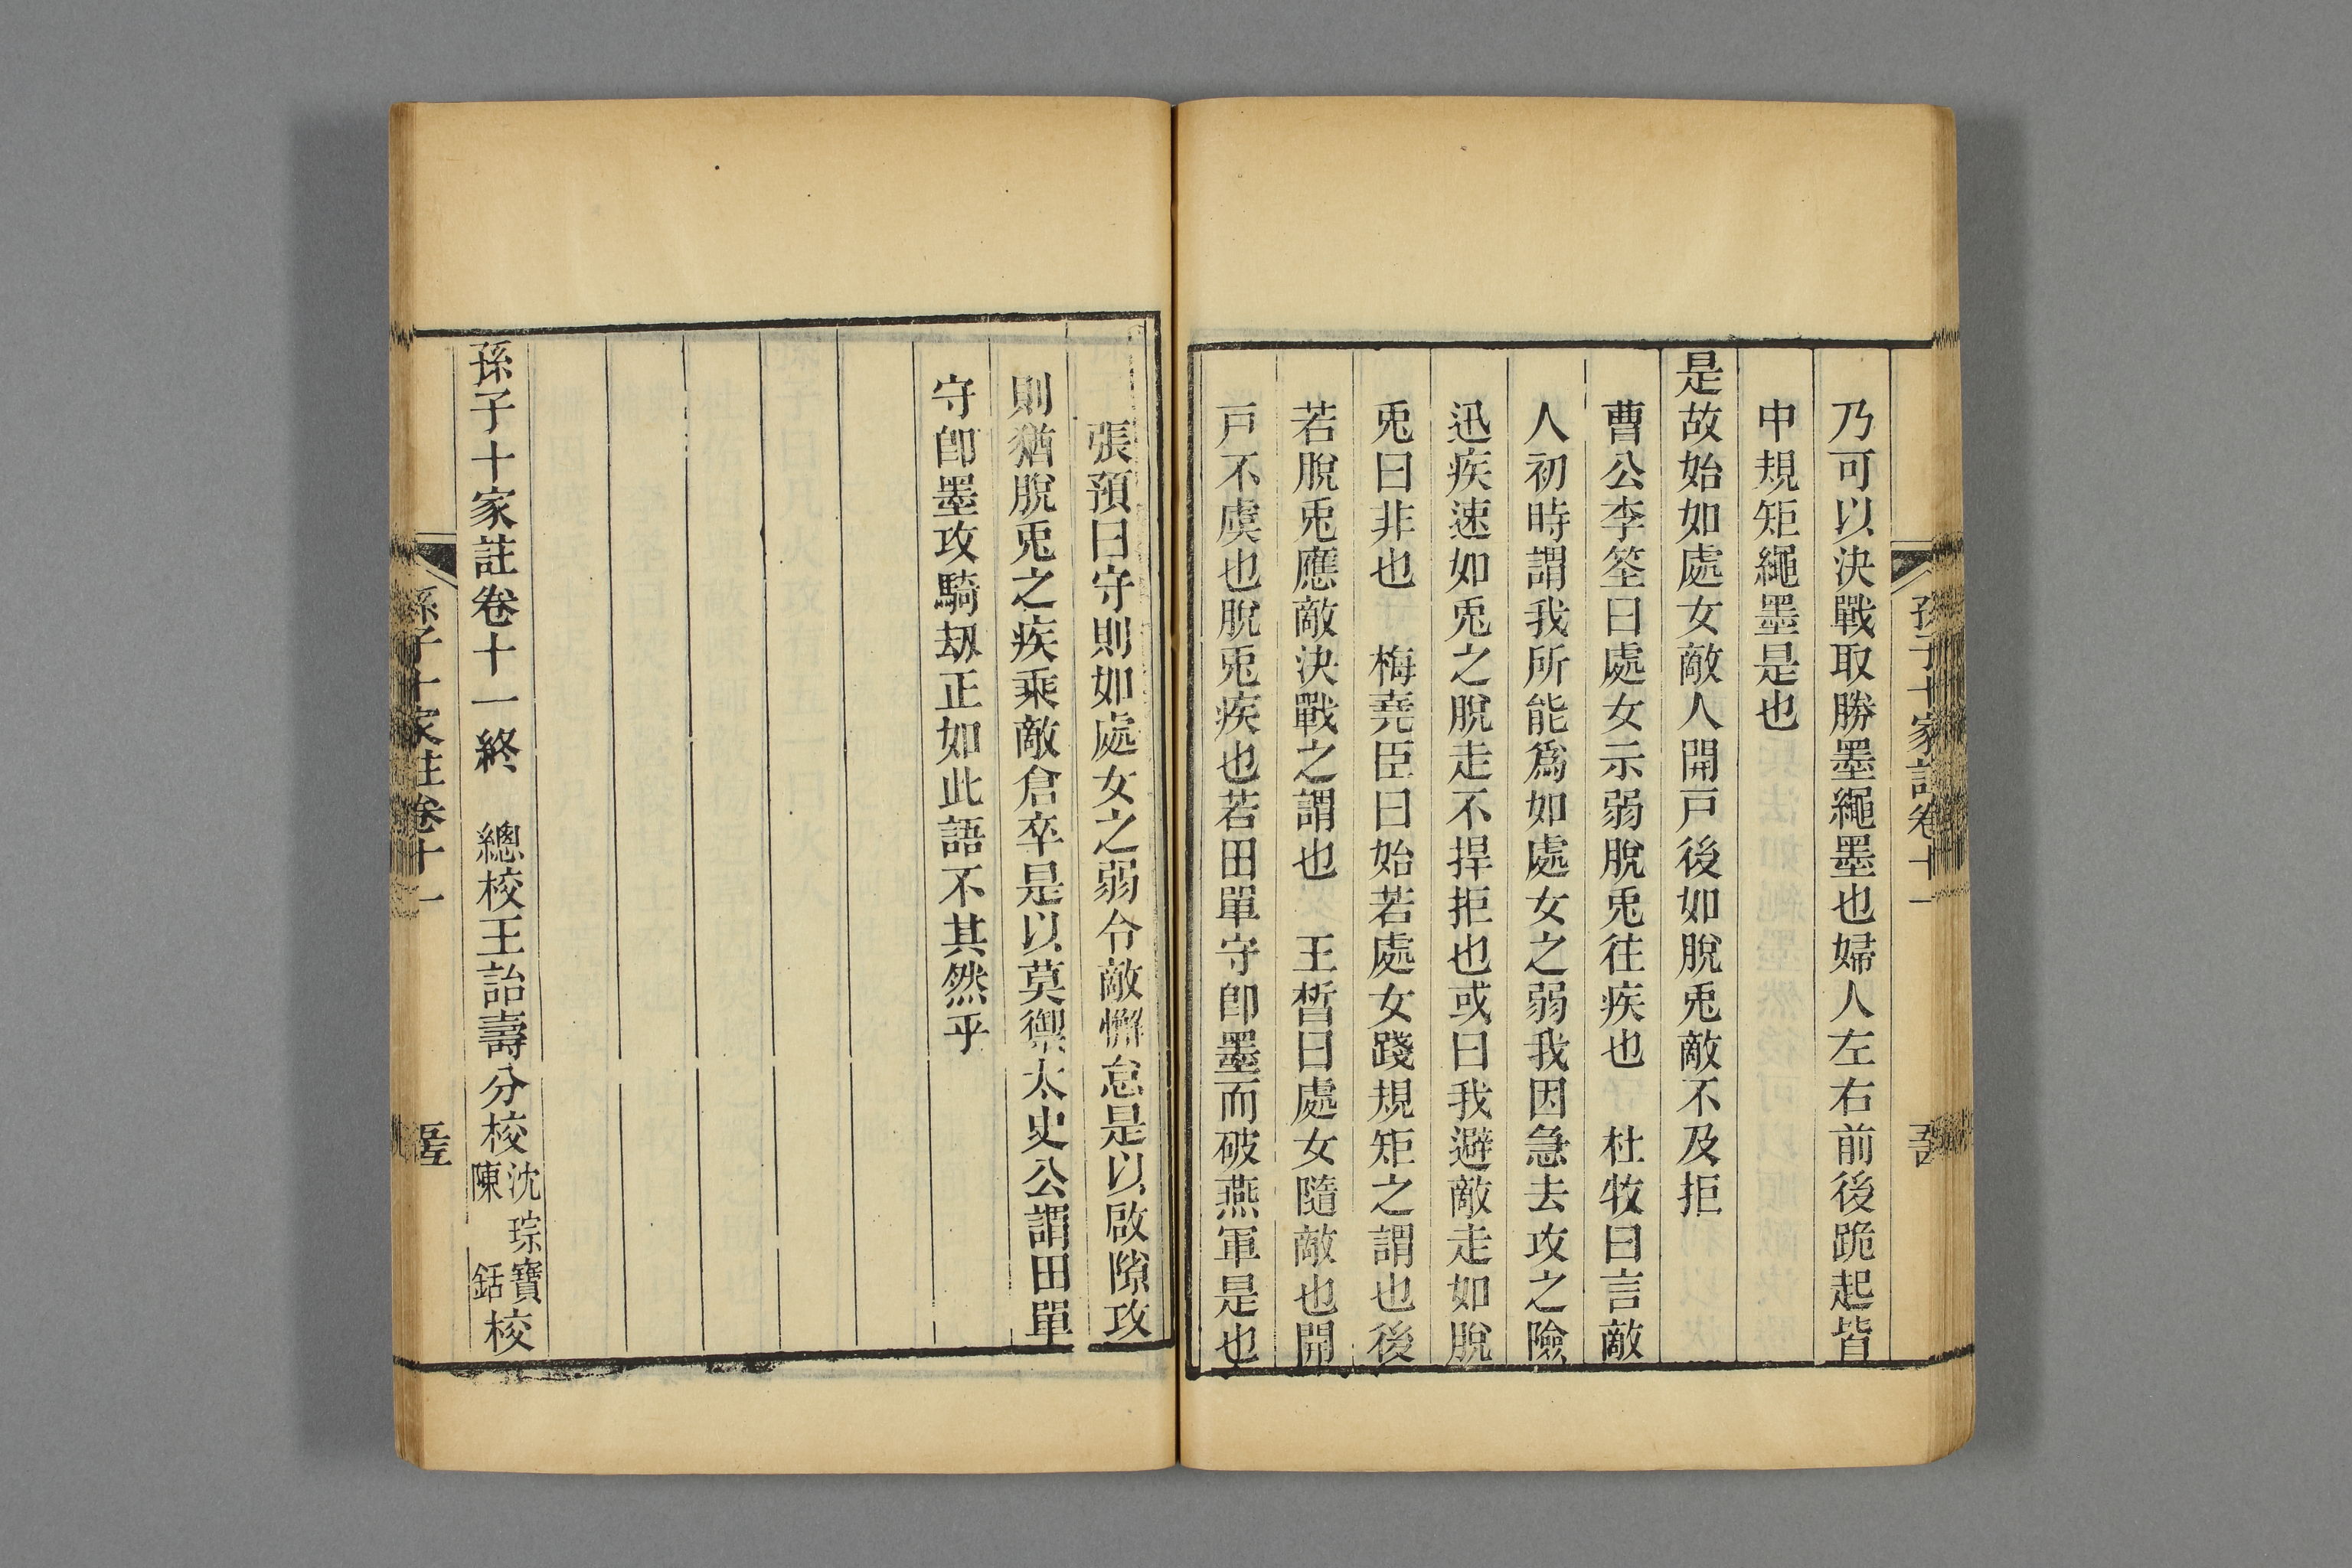 孫子十家註卷十一
乃可以決戰取勝墨繩墨也婦人左右前後跪起皆
中規矩繩墨是也
是故始如處女敵人開戸後如脫兎敵不及拒
曹公李筌曰處女示弱脫兎往疾也　杜牧曰言敵
人初時謂我所能爲如處女之弱我因急去攻之險
迅疾速如兎之脫走不捍拒也或曰我避敵走如脫
兎曰非也　梅堯臣曰始若處女踐規矩之謂也後
若脫兎應敵決戰之謂也　王晳曰處女隨敵也開
戸不虞也脫兎疾也若田單守卽墨而破燕軍是也
張預曰守則如處女之弱令敵懈怠是以啟隙攻
則猶脫兎之疾乘敵倉卒是以莫禦太史公謂田單
守卽墨攻騎劫正如此語不其然乎
孫子十家註卷十一終　總校王詒壽分校沈琮寶陳銛校
孫子十家註卷十一